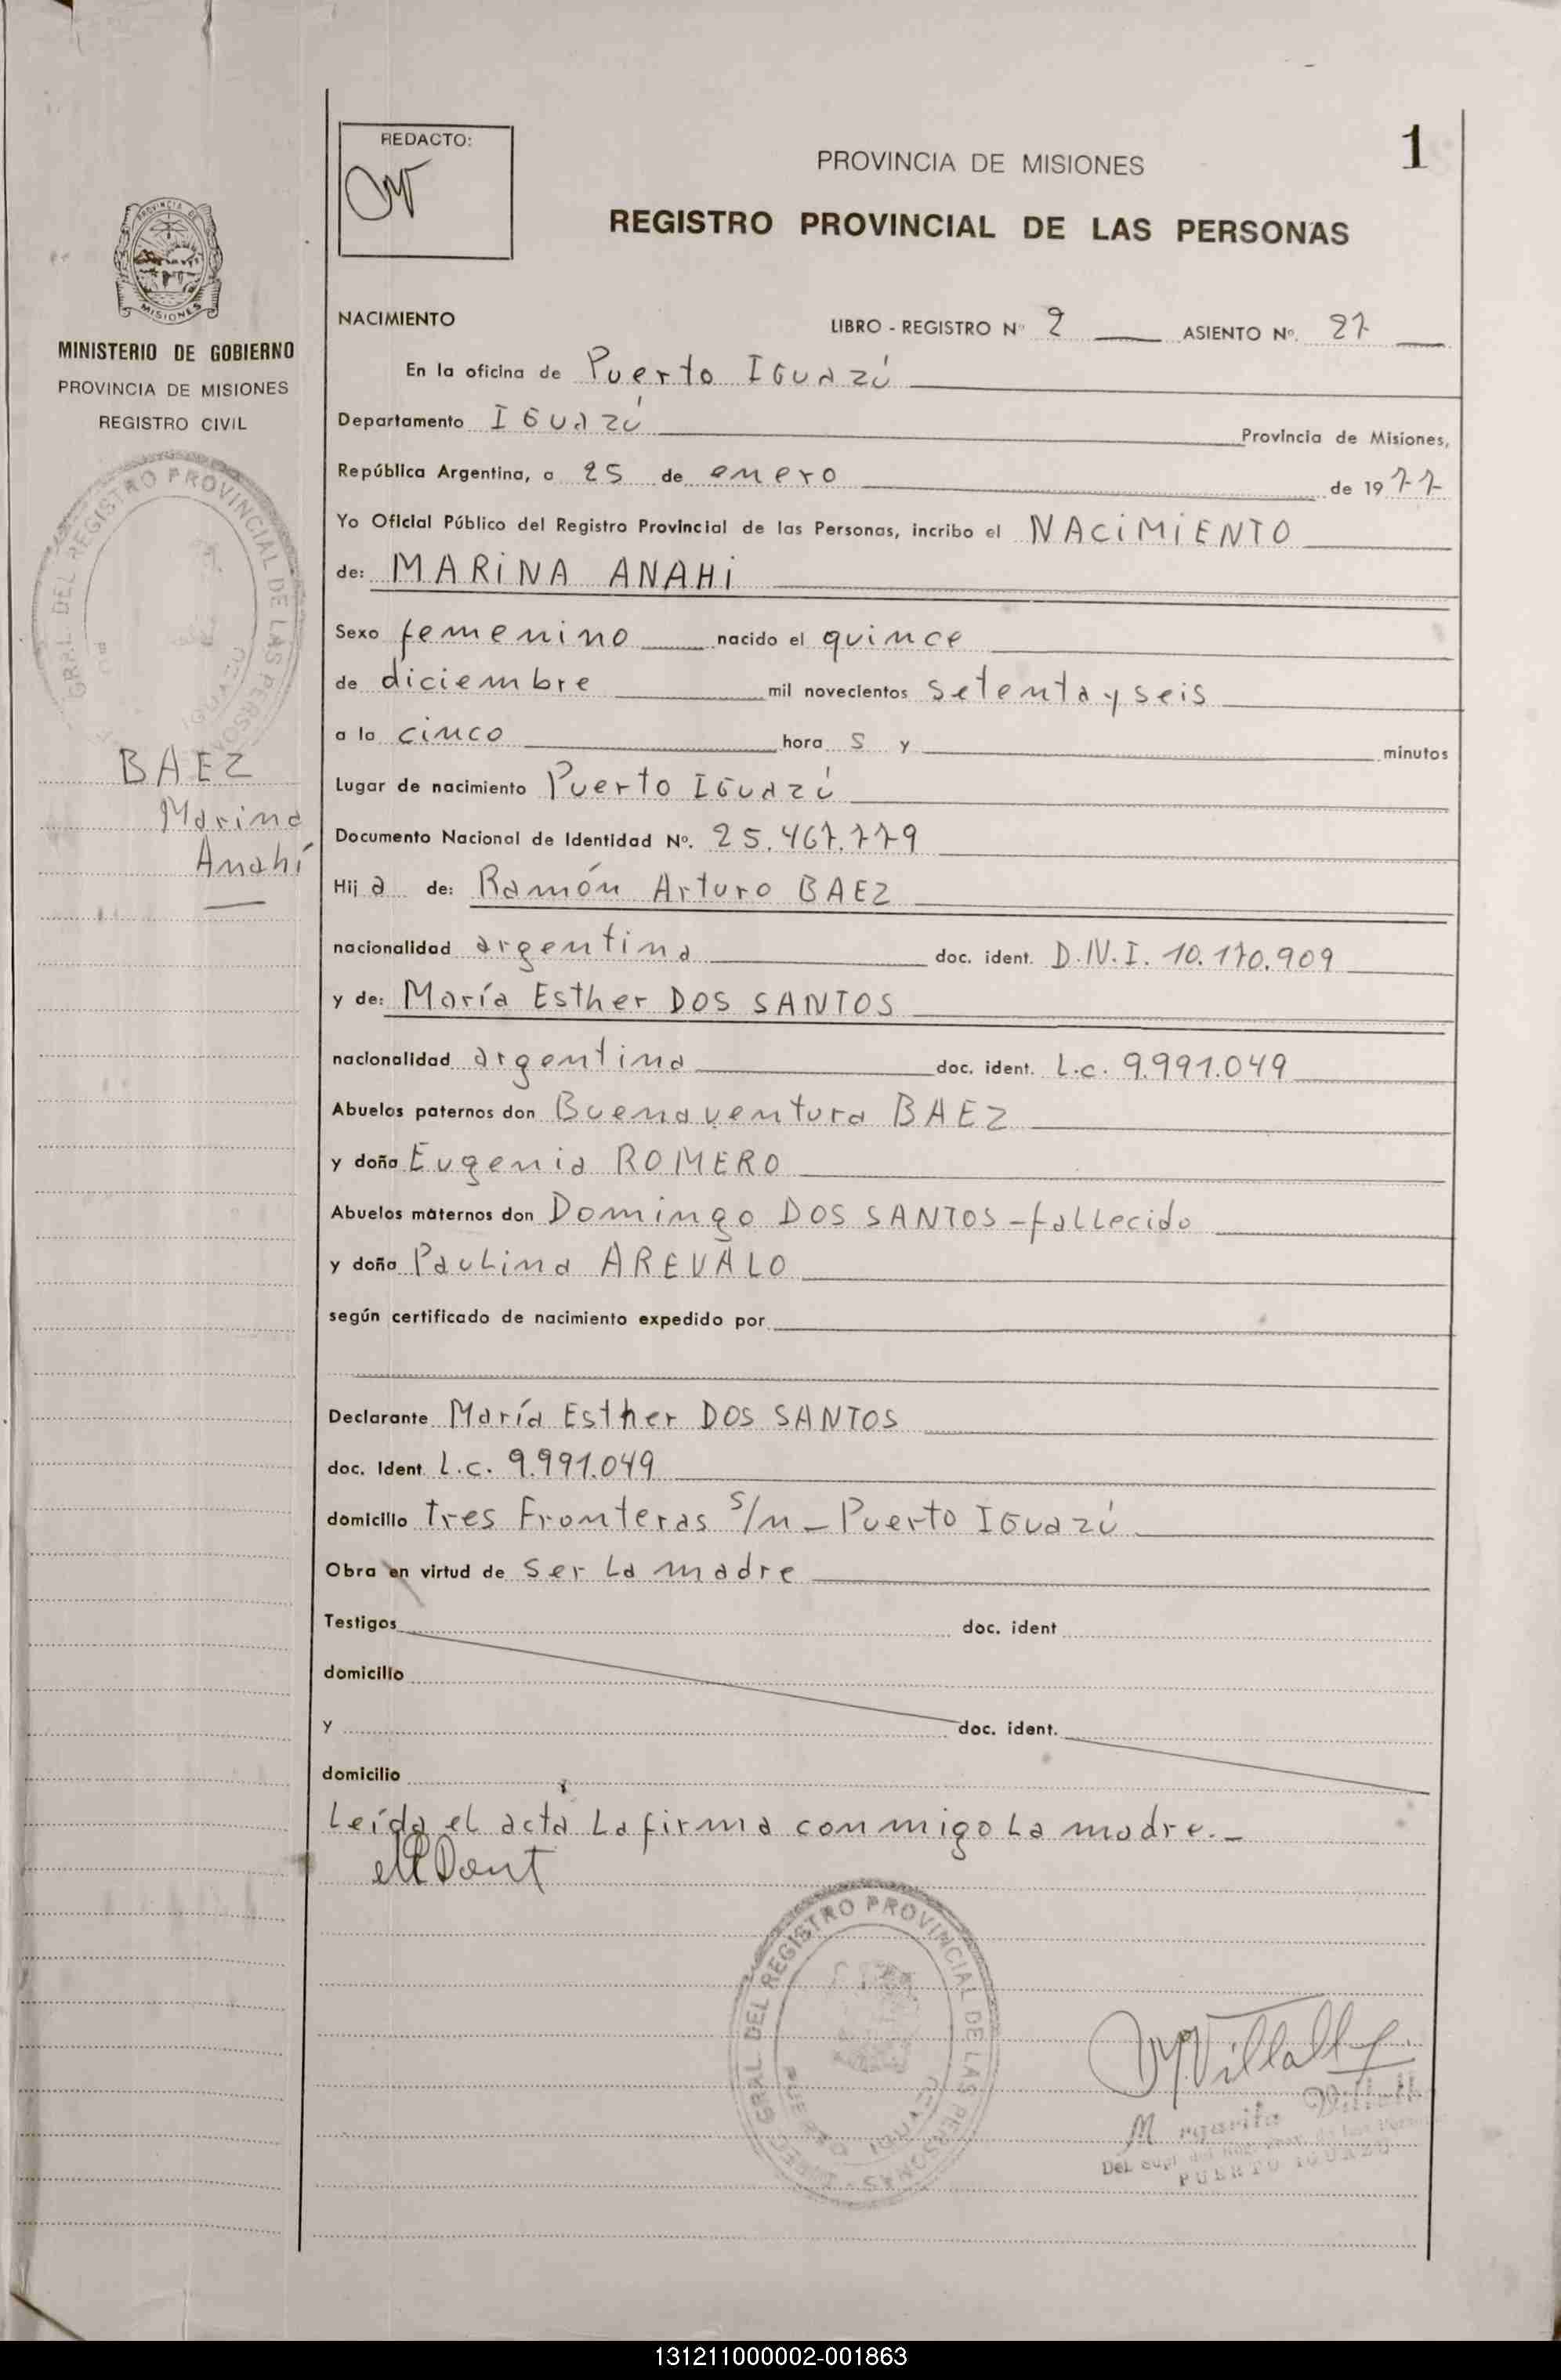 REDACTO:
1
PROVINCIA DE MISIONES
REGISTRO PROVINCIAL DE LAS PERSONAS
PROVINCIA DE
MISIONES
MINISTERIO DE GOBIERNO
PROVINCIA DE MISIONES
REGISTRO CIVIL
GRAL DEL REGISTRO PROVINCIAL DE LAS PERSO
BAEZ
Marina
Anahí
NACIMIENTO LIBRO - REGISTRO Nº 2 ASIENTO Nº. 87
En la oficina de Puerto IGUAZÚ
Departamento IGUAZÚ Provincia de Misiones,
República Argentina, a 25 de enero de 1977
Yo Oficial Público del Registro Provincial de las Personas, incribo el NACIMIENTO
de: MARINA ANAHI
Sexo femenino nacido el quince
de diciembre mil novecientos setenta y seis
a la cinco hora s y minutos
Lugar de nacimiento Puerto IGUAZÚ
Documento Nacional de Identidad Nº. 25.467.779
Hij a de: Ramón Arturo BAEZ
nacionalidad argentina doc. ident. D.N.I. 10.170.909
y de: María Esther DOS SANTOS
nacionalidad argentina doc. ident. L.c. 9.991.049
Abuelos paternos don Buenaventura BAEZ
y doña Eugenia ROMERO
Abuelos maternos don Domingo DOS SANTOS - fallecido
y doña Paulina AREVALO
según certificado de nacimiento expedido por
Declarante María Esther DOS SANTOS
doc. Ident L.c. 9.991.049
domicilio Tres Fronteras s/n - Puerto IGUAZÚ
Obra en virtud de ser la madre
Testigos doc. ident
domicilio
y doc. ident.
domicilio
Leída el acta la firma conmigo la madre.-
GRAL DEL REGISTRO PROVINCIAL DE LAS PERSONAS
PUERTO IGUAZU